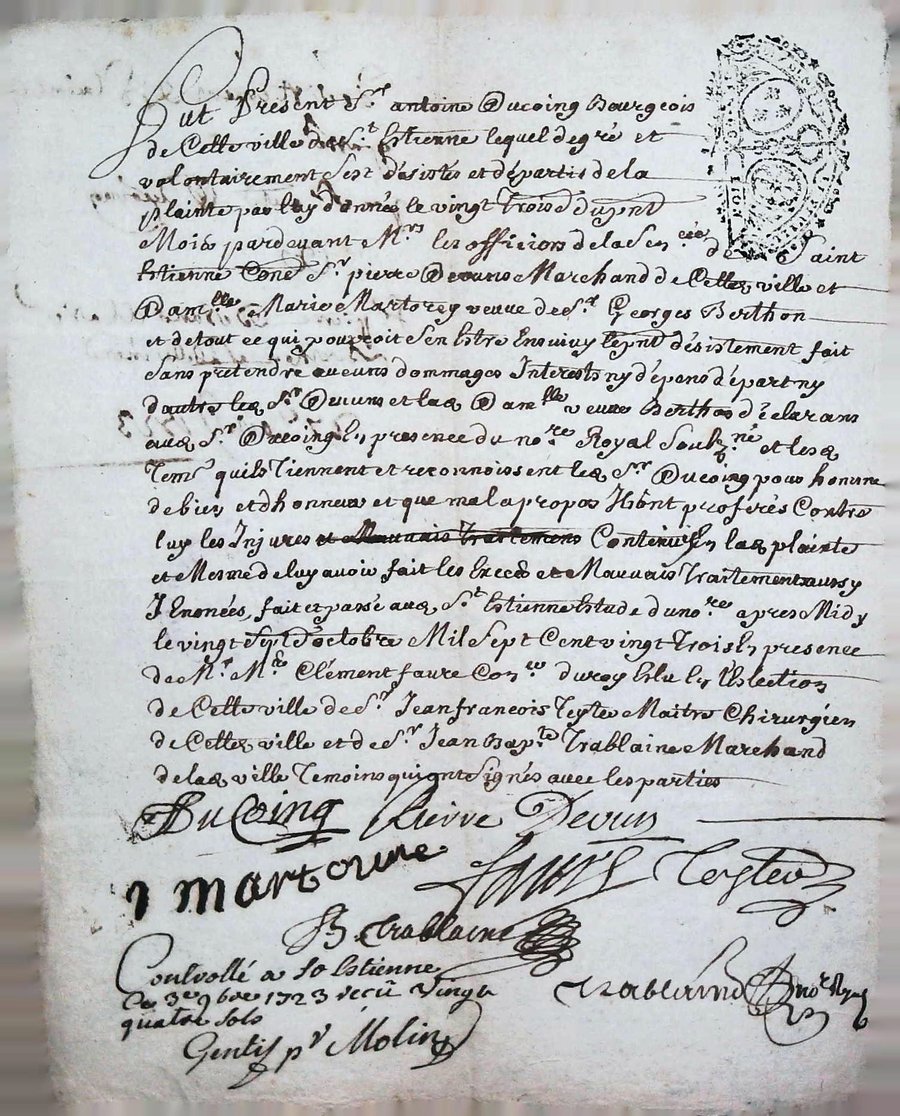 Fut Présent Sr. antoine Ducoing Bourgeois
de Cette ville de St. Estienne lequel de gré et
volontairement Sest désistés et départis de la
plainte par luy donnée le vingt trois du pnt
Mois pardevant Mrs. les officiers de la Sen.cée de Saint
Estienne Cone Sr. pierre Devuns Marchand de Cette ville et
Damlle Marie Martorey veuve de Sr. Georges Berthon
et de tout ce qui pourroit Sen Estre Ensuivy le pnt désistement fait
Sans pretendre aucuns dommages Interests ny dépens départ ny
dautre les Sr. Devuns et lad Damlle veuve Berthon déclarans
aud Sr. Ducoing En presence du nore. Royal Soubzné. et lesd
Tems quils Tiennent et reconnoissent led Sr. Ducoing pour homme
de bien et dhonneur et que mal a propos Ils ont proferés Contre
luy les Injures et Mauvais traitemens Contenus En lad plainte
et Mesme de luy avoir fait les Excès et Mauvais traitement aussy
Y Enonées, fait et passé aud St. Estienne Estude du nore. apres Midy
le vingt Sept d'octobre Mil Sept Cent vingt Trois En presence
de Mr. Me Clément faure Coner du roy Eslu En L'Eslection
de Cette ville de Sr. Jean francois Teyter Maitre Chirurgien
de Cette ville et de Sr. Jean Bapte. Trablaine Marchand
de lad ville Temoins qui ont Signés avec les parties
Ducoing Pierre Devuns
Martourie faure Teyter
JB. Trablaine
Controllé a St Estienne
Ce 3e 9bre 1723 reçu Vingt
quatre Sols
Trablaine nore Ryal
Gentis pr Molin